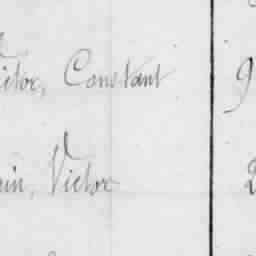 ictor, Constant 9
ain, Victor 2